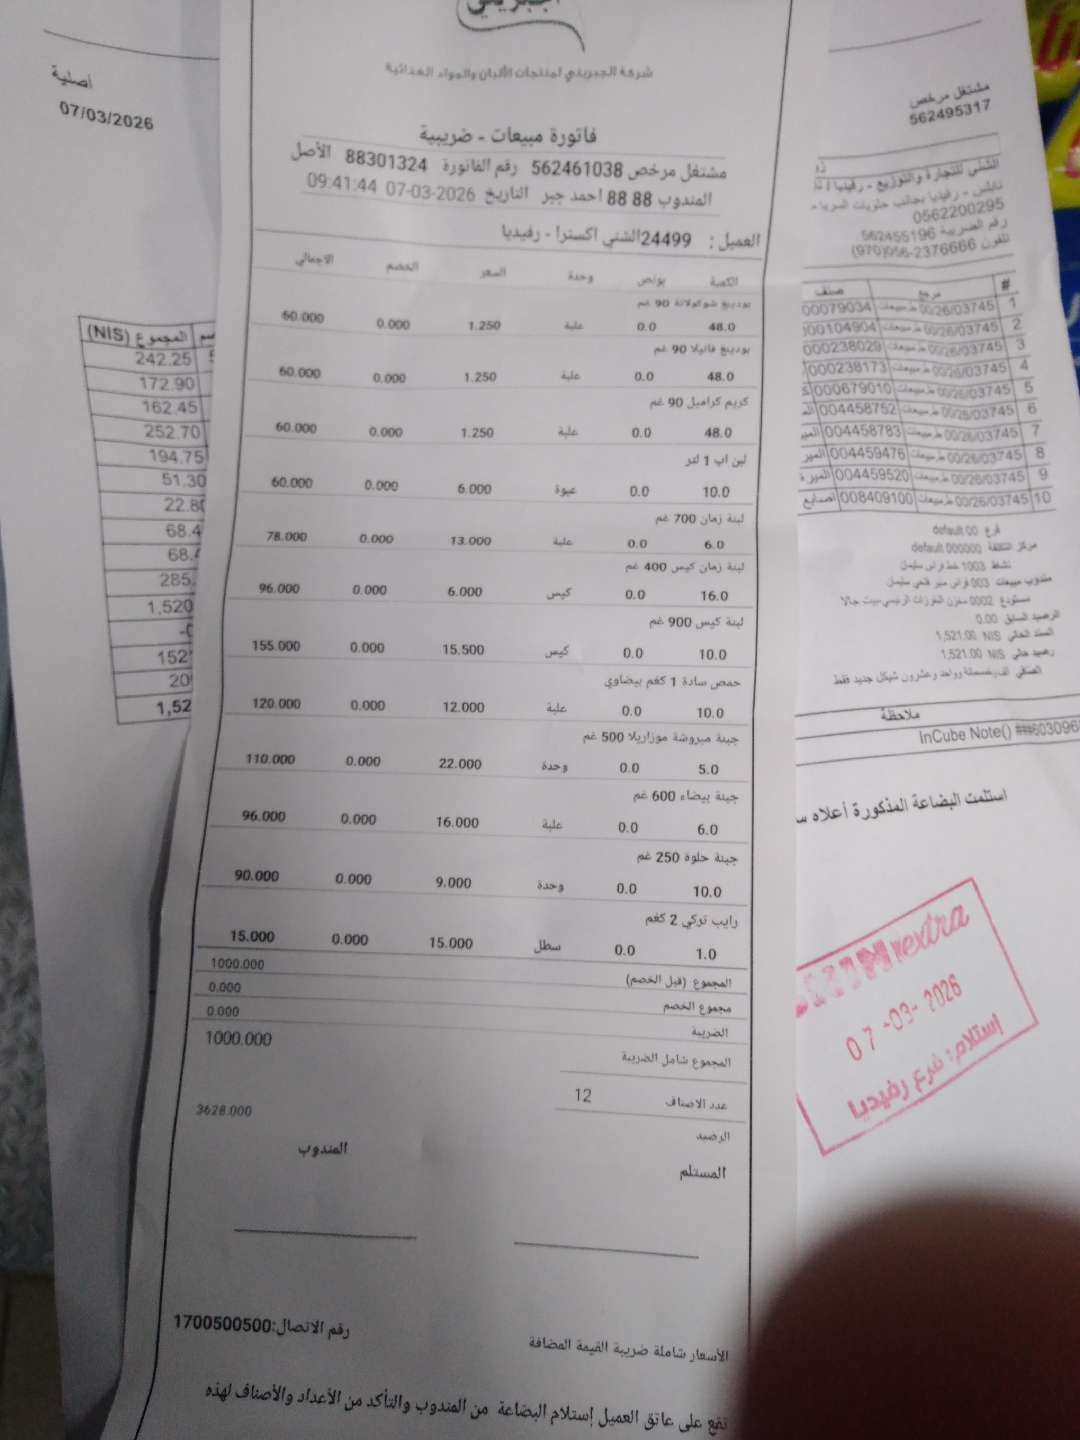 الجبريني
شركة الجبريني لمنتجات الألبان والمواد الغذائية
فاتورة مبيعات - ضريبية
مشتغل مرخص 562461038 رقم الفاتورة 88301324 الأصل
المندوب 88 88 احمد جبر التاريخ 2026-03-07 09:41:44
العميل : 24499الشني اكسترا - رفيديا
الكمية بونص وحدة السعر الخصم الاجمالي
بودينغ شوكولاتة 90 غم
48.0 0.0 علبة 1.250 0.000 60.000
بودينغ فانيلا 90 غم
48.0 0.0 علبة 1.250 0.000 60.000
كريم كراميل 90 غم
48.0 0.0 علبة 1.250 0.000 60.000
لبن اب 1 لتر
10.0 0.0 عبوة 6.000 0.000 60.000
لبنة زمان 700 غم
6.0 0.0 علبة 13.000 0.000 78.000
لبنة زمان كيس 400 غم
16.0 0.0 كيس 6.000 0.000 96.000
لبنة كيس 900 غم
10.0 0.0 كيس 15.500 0.000 155.000
حمص سادة 1 كغم بيضاوي
10.0 0.0 علبة 12.000 0.000 120.000
جبنة مبروشة موزاريلا 500 غم
5.0 0.0 وحدة 22.000 0.000 110.000
جبنة بيضاء 600 غم
6.0 0.0 علبة 16.000 0.000 96.000
جبنة حلوة 250 غم
10.0 0.0 وحدة 9.000 0.000 90.000
رايب تركي 2 كغم
1.0 0.0 سطل 15.000 0.000 15.000
المجموع (قبل الخصم) 1000.000
مجموع الخصم 0.000
الضريبة 0.000
المجموع شامل الضريبة 1000.000
عدد الاصناف 12
الرصيد 3628.000
المستلم المندوب
الأسعار شاملة ضريبة القيمة المضافة رقم الاتصال:1700500500
تقع على عاتق العميل إستلام البضاعة من المندوب والتأكد من الأعداد والأصناف لهذه
مشتغل مرخص
562495317
الشني للتجارة والتوزيع - رفيديا
نابلس - رفيديا بجانب حلويات
0562200295
رقم الضريبة 562455196
تلفون 2376666-056(970)
# مرجع صنف
1 00/26/03745 ط مبيعات 00079034
2 00/26/03745 ط مبيعات 000104904
3 00/26/03745 ط مبيعات 000238029
4 00/26/03745 ط مبيعات 000238173
5 00/26/03745 ط مبيعات 000679010
6 00/26/03745 ط مبيعات 004458752
7 00/26/03745 ط مبيعات 004458783
8 00/26/03745 ط مبيعات 004459476
9 00/26/03745 ط مبيعات 004459520
10 00/26/03745 ط مبيعات 008409100
فرع 00 default
مركز التكلفة 000000 default
نشاط 1003 خط فراس سليمان
مندوب مبيعات 003 فراس منير فتحي سليمان
مستودع 0002 مخزن المفرزات الرئيسي-بيت جالا
الرصيد السابق 0.00
السند الحالي NIS 1,521.00
رصيد حالي NIS 1,521.00
الصافي الف وخمسمائة وواحد وعشرون شيكل جديد فقط
ملاحظة
InCube Note() ##603096
استلمت البضاعة المذكورة أعلاه
extra
07-03-2026
إستلام: فرع رفيديا
أصلية
07/03/2026
المجموع (NIS)
242.25
172.90
162.45
252.70
194.75
51.30
22.80
68.4
68.4
285.
1,520
152
20
1,52